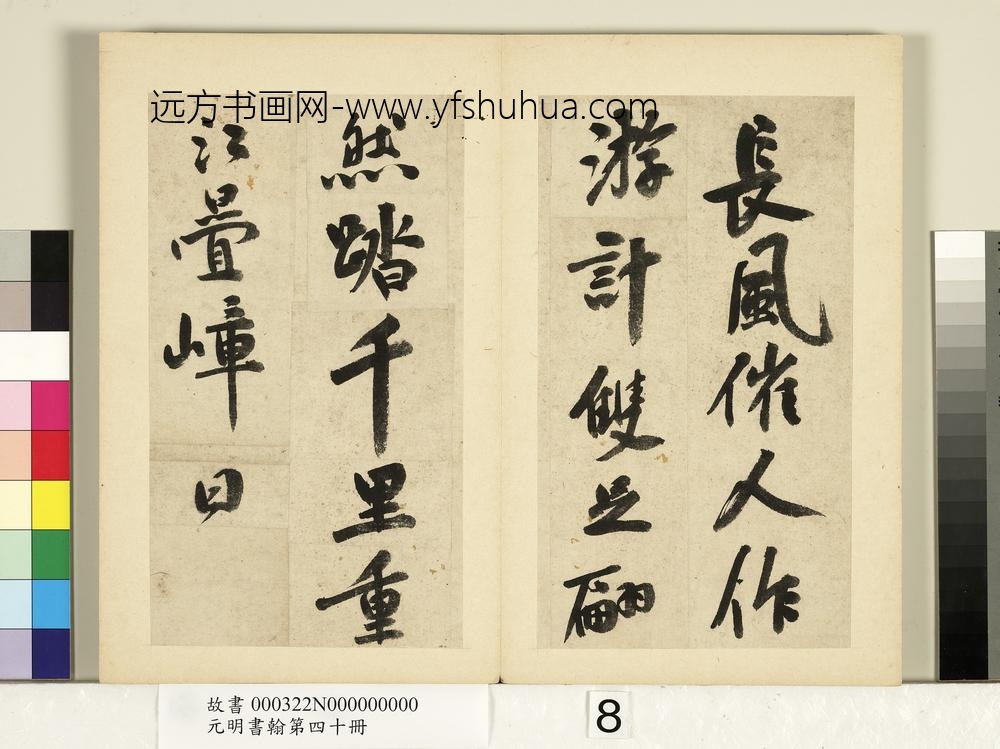 远方书画网-www.yfshuhua.com
長風催人作
游計雙足翩
然踏千里重
江疊嶂日
故書 000322N000000000
元明書翰第四十冊
8